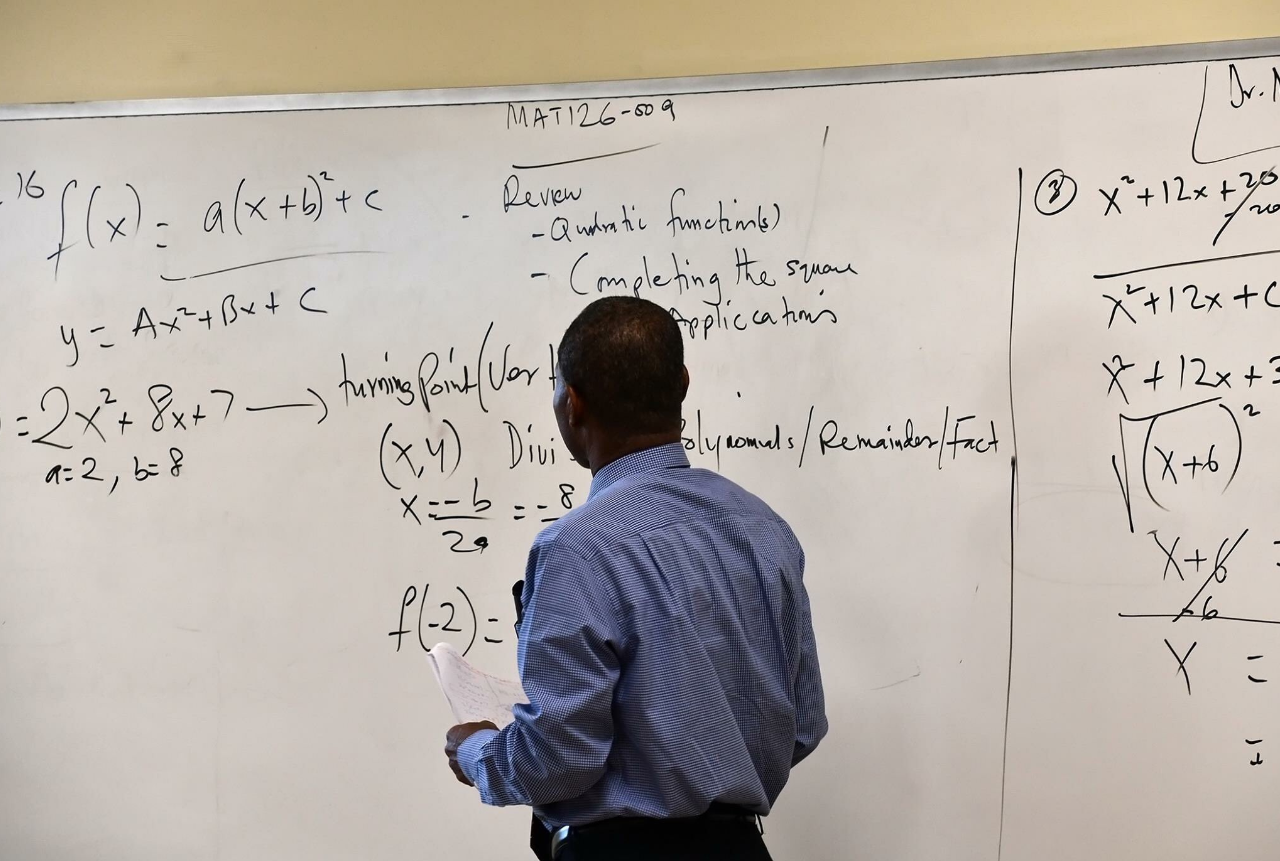 MAT126-009
16 f(x) = a(x+b)²+c
y = Ax²+Bx+C
=2x²+8x+7 → turning Point (Ver
a=2, b=8
Review
- Quadratic function(s)
- Completing the square
Applications
(x,y) Divi Polynomials/Remainder/Fact
x = -b/2a = -8
f(-2) =
Dr.
③ x²+12x+20
-20
x²+12x+C
x²+12x+3
√(x+6)²
x+6 =
-6
x =
=